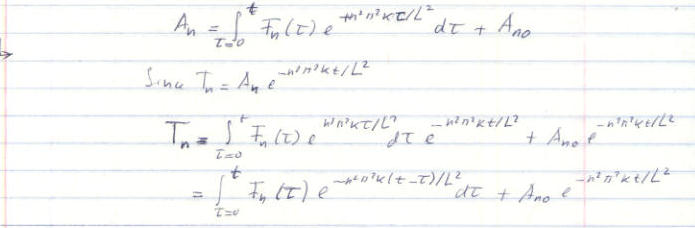 Aₙ = ∫_{τ=0}^{t} Fₙ(τ) e^{+n²π²κτ/L²} dτ + Aₙ₀
Since Tₙ = Aₙ e^{-n²π²κt/L²}
Tₙ = ∫_{τ=0}^{t} Fₙ(τ) e^{n²π²κτ/L²} dτ e^{-n²π²κt/L²} + Aₙ₀ e^{-n²π²κt/L²}
= ∫_{τ=0}^{t} Fₙ(τ) e^{-n²π²κ(t-τ)/L²} dτ + Aₙ₀ e^{-n²π²κt/L²}